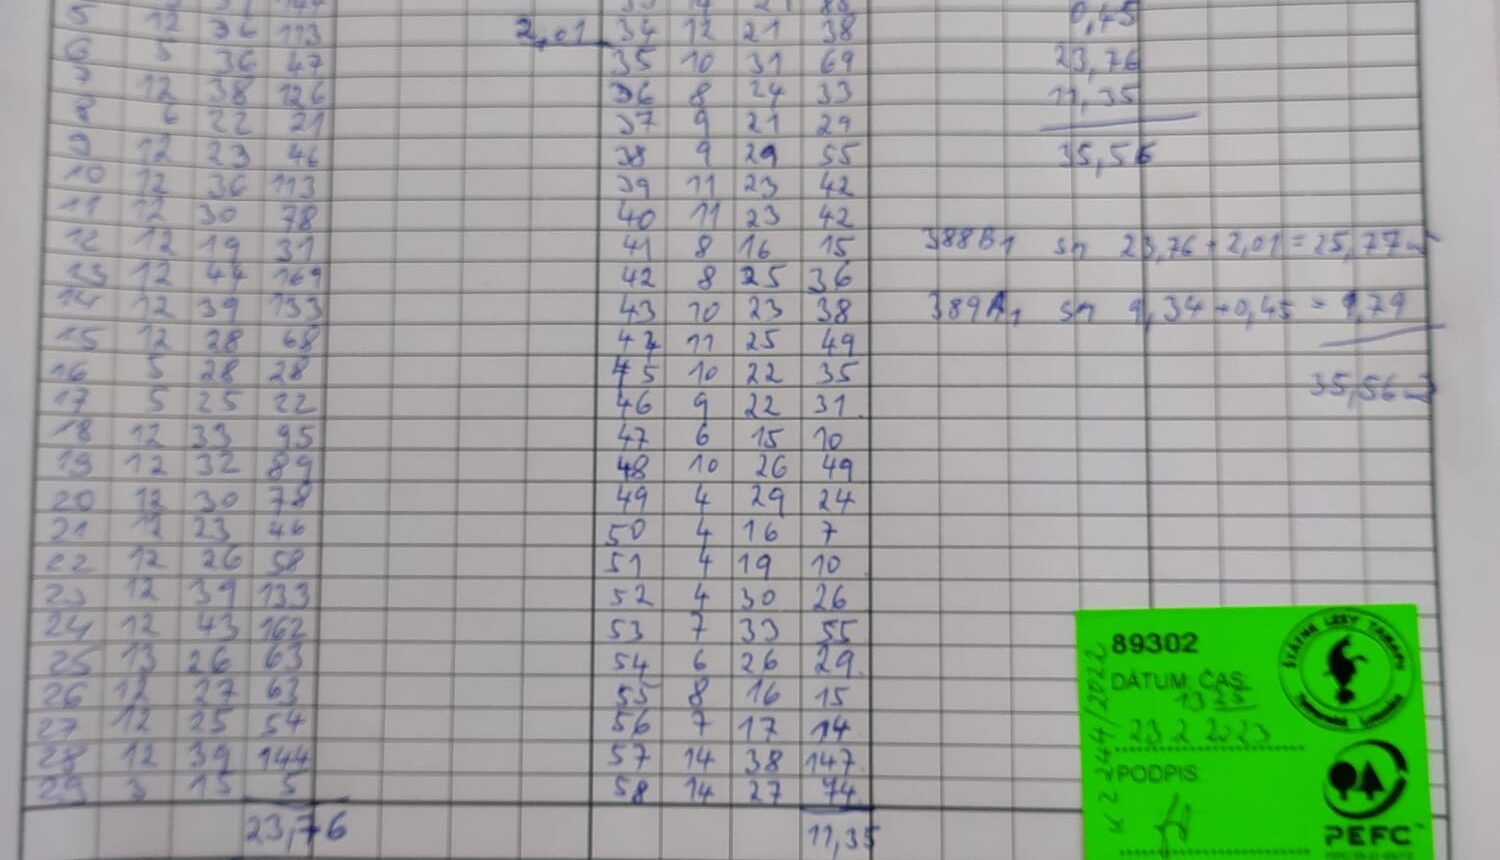 5 12 36 113
6 5 36 47
7 12 38 126
8 6 22 21
9 12 23 46
10 12 36 113
11 12 30 78
12 12 19 31
13 12 44 169
14 12 39 133
15 12 28 68
16 5 28 28
17 5 25 22
18 12 33 95
19 12 32 89
20 12 30 78
21 12 23 46
22 12 26 58
23 12 39 133
24 12 43 162
25 13 26 63
26 12 27 63
27 12 25 54
28 12 39 144
29 3 15 5
23,76
2,01
34 12 21 38
35 10 31 69
36 8 24 33
37 9 21 29
38 9 29 55
39 11 23 42
40 11 23 42
41 8 16 15
42 8 25 36
43 10 23 38
44 11 25 49
45 10 22 35
46 9 22 31
47 6 15 10
48 10 26 49
49 4 29 24
50 4 16 7
51 4 19 10
52 4 30 26
53 7 33 55
54 6 26 29
55 8 16 15
56 7 17 14
57 14 38 147
58 14 27 74
11,35
0,45
23,76
11,35
35,56
388B1 sm 23,76 + 2,01 = 25,77
389A1 sm 9,34 + 0,45 = 9,79
35,56
89302
DÁTUM, ČAS:
13 25
23 2 2023
PODPIS
244/2022
ŠTÁTNE LESY TANAPU
TATRANSKÁ LOMNICA
PEFC